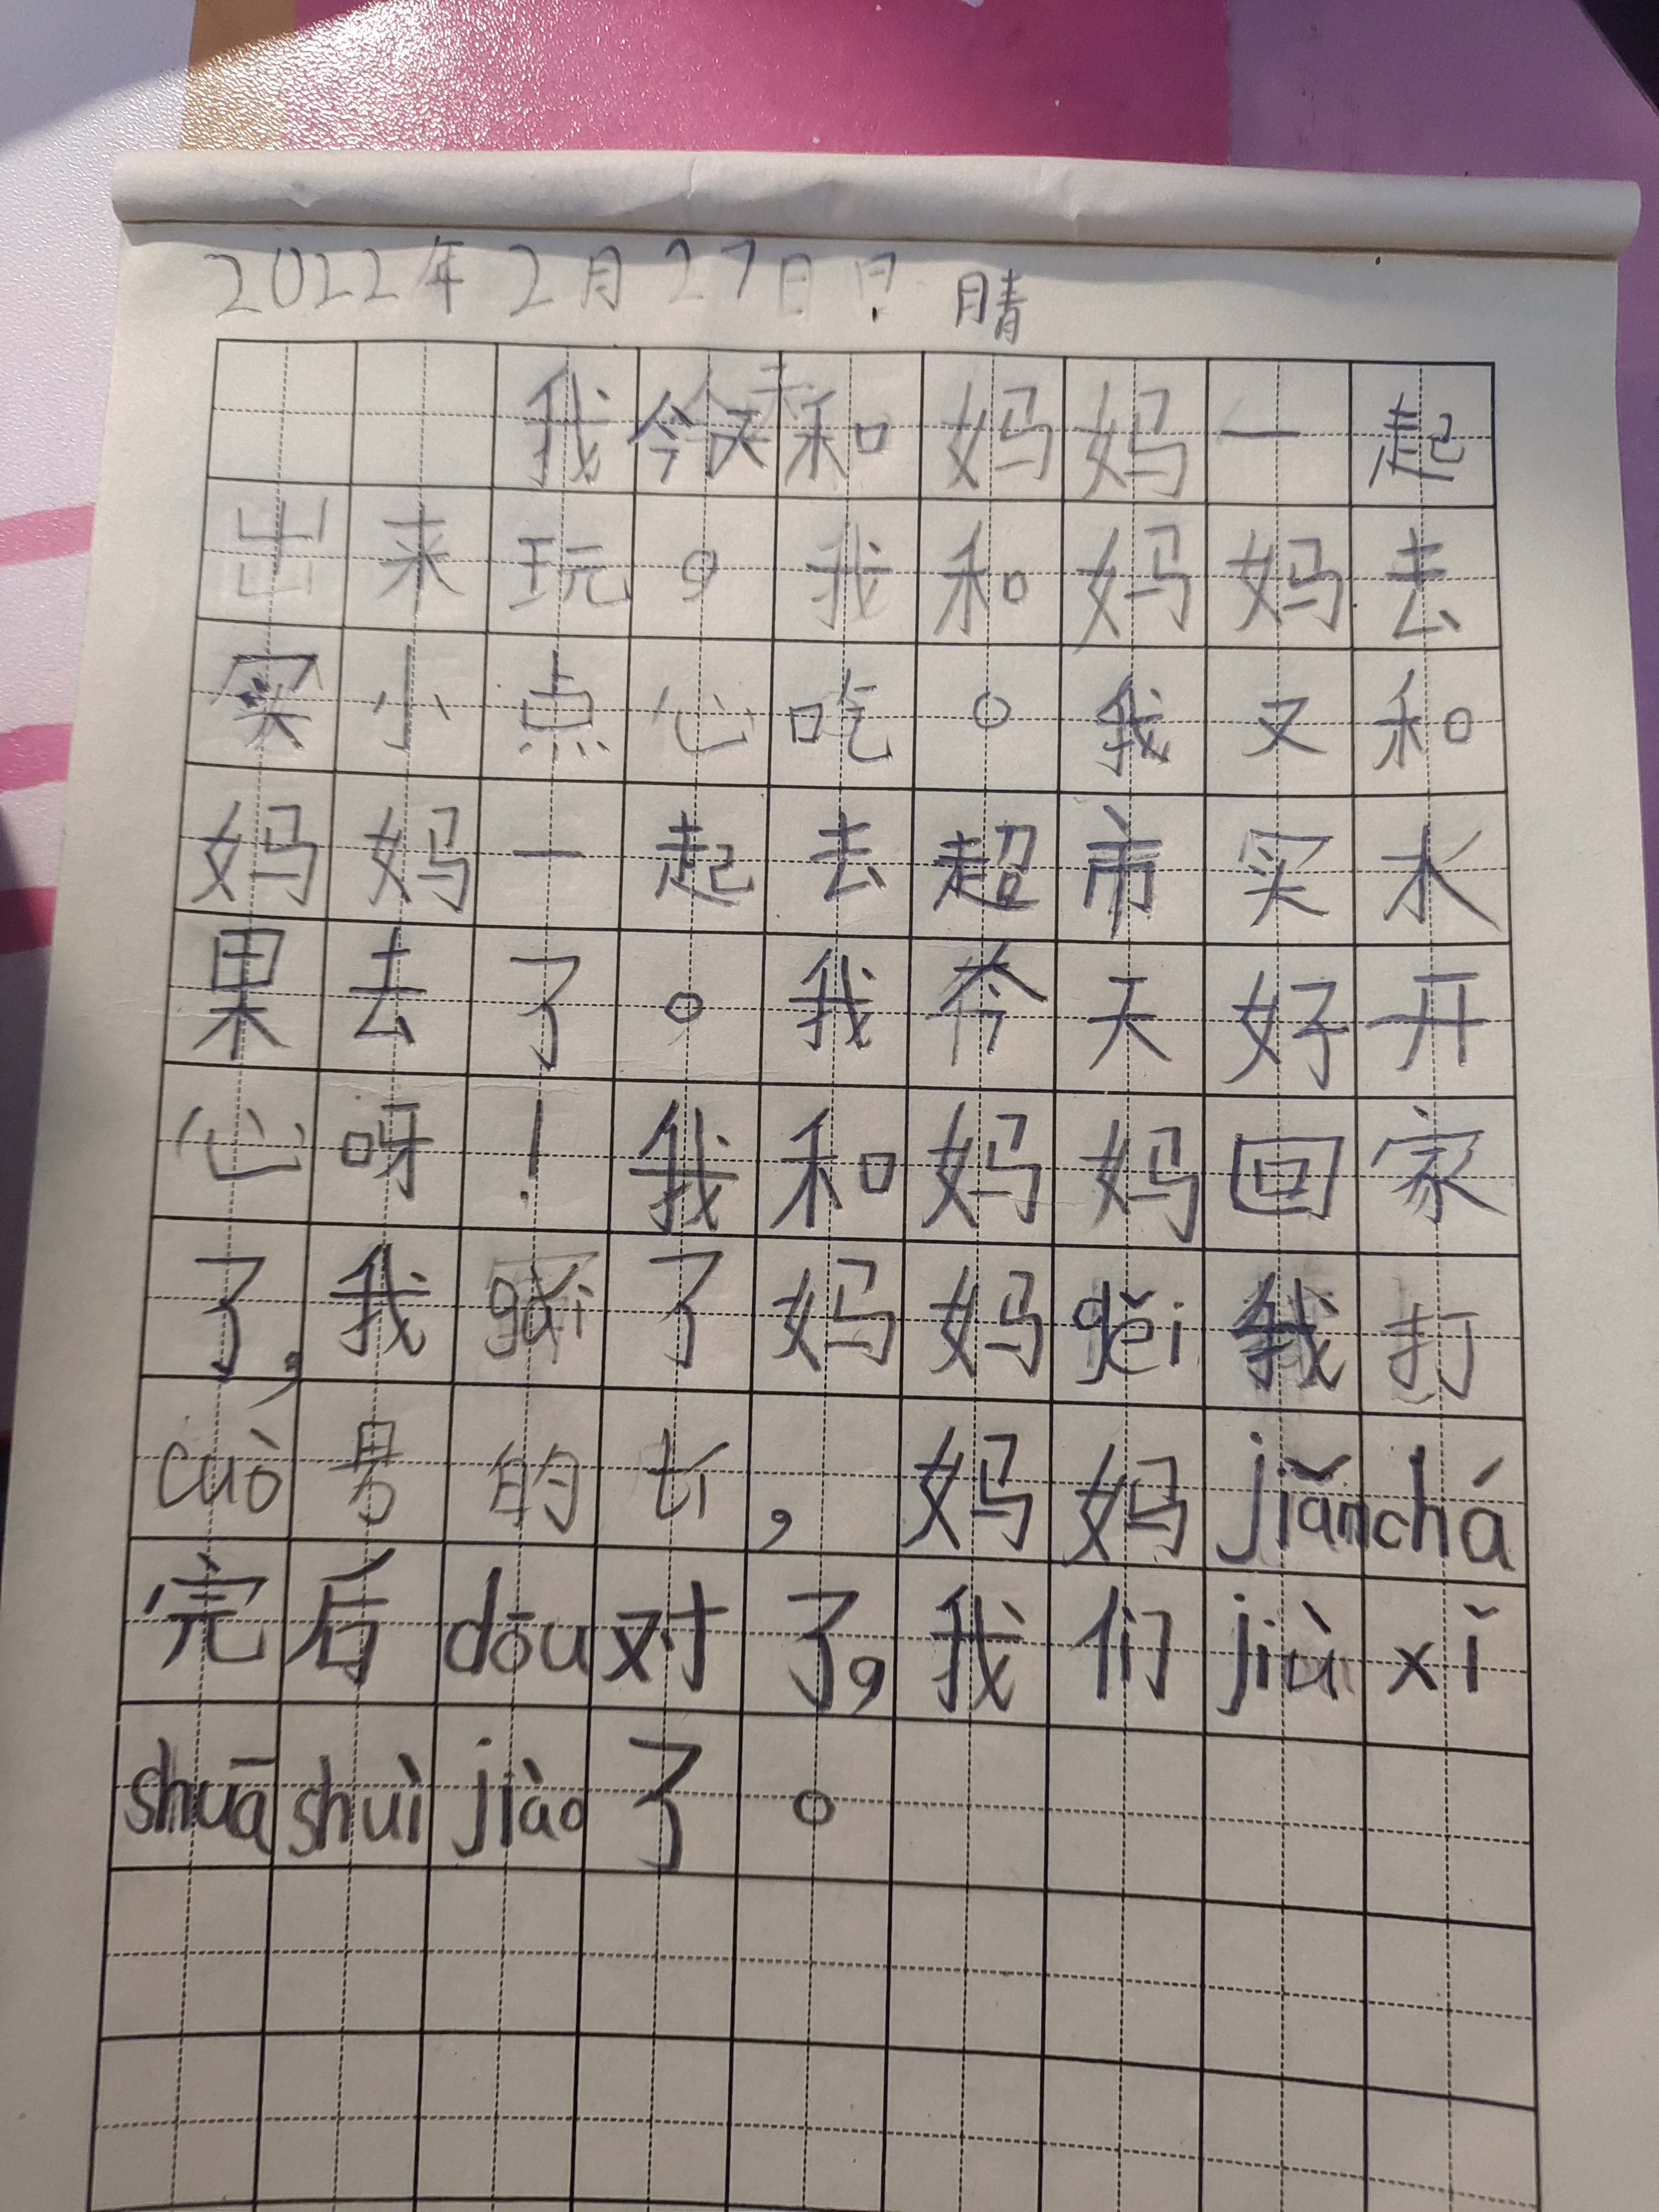 2022年2月27日 晴
我今天和妈妈一起
出来玩。我和妈妈去
买小点心吃。我又和
妈妈一起去超市买水
果去了。我今天好开
心呀！我和妈妈回家
了，我gǎi了妈妈gěi我打
cuò号的，妈妈jiǎnchá
完后dōu对了，我们jiù xǐ
shuā shuì jiào了。